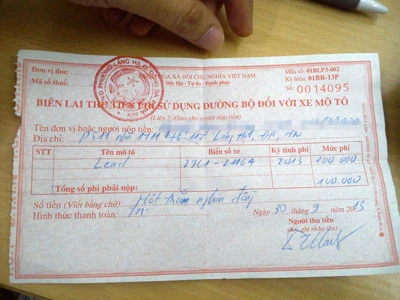 Đơn vị thu:
Mã số thuế:
CỘNG HÒA XÃ HỘI CHỦ NGHĨA VIỆT NAM
Độc lập - Tự do - Hạnh phúc
Mẫu số: 01BLP3-002
Ký hiệu: 01BR-13P
Số: 0014095
BIÊN LAI THU TIỀN PHÍ SỬ DỤNG ĐƯỜNG BỘ ĐỐI VỚI XE MÔ TÔ
(Liên 2: Giao cho người nộp tiền)
Tên đơn vị hoặc người nộp tiền:
Địa chỉ: Láng Hạ, ĐĐ, HN
STT Tên mô tô Biển số xe Kỳ tính phí Mức phí
Lead 2013 100.000
Tổng số phí phải nộp: 100.000
Số tiền (Viết bằng chữ): Một trăm nghìn đồng
Hình thức thanh toán: TM
Ngày 30 tháng 9 năm 2013
Người thu tiền
(Ký, ghi rõ họ tên)